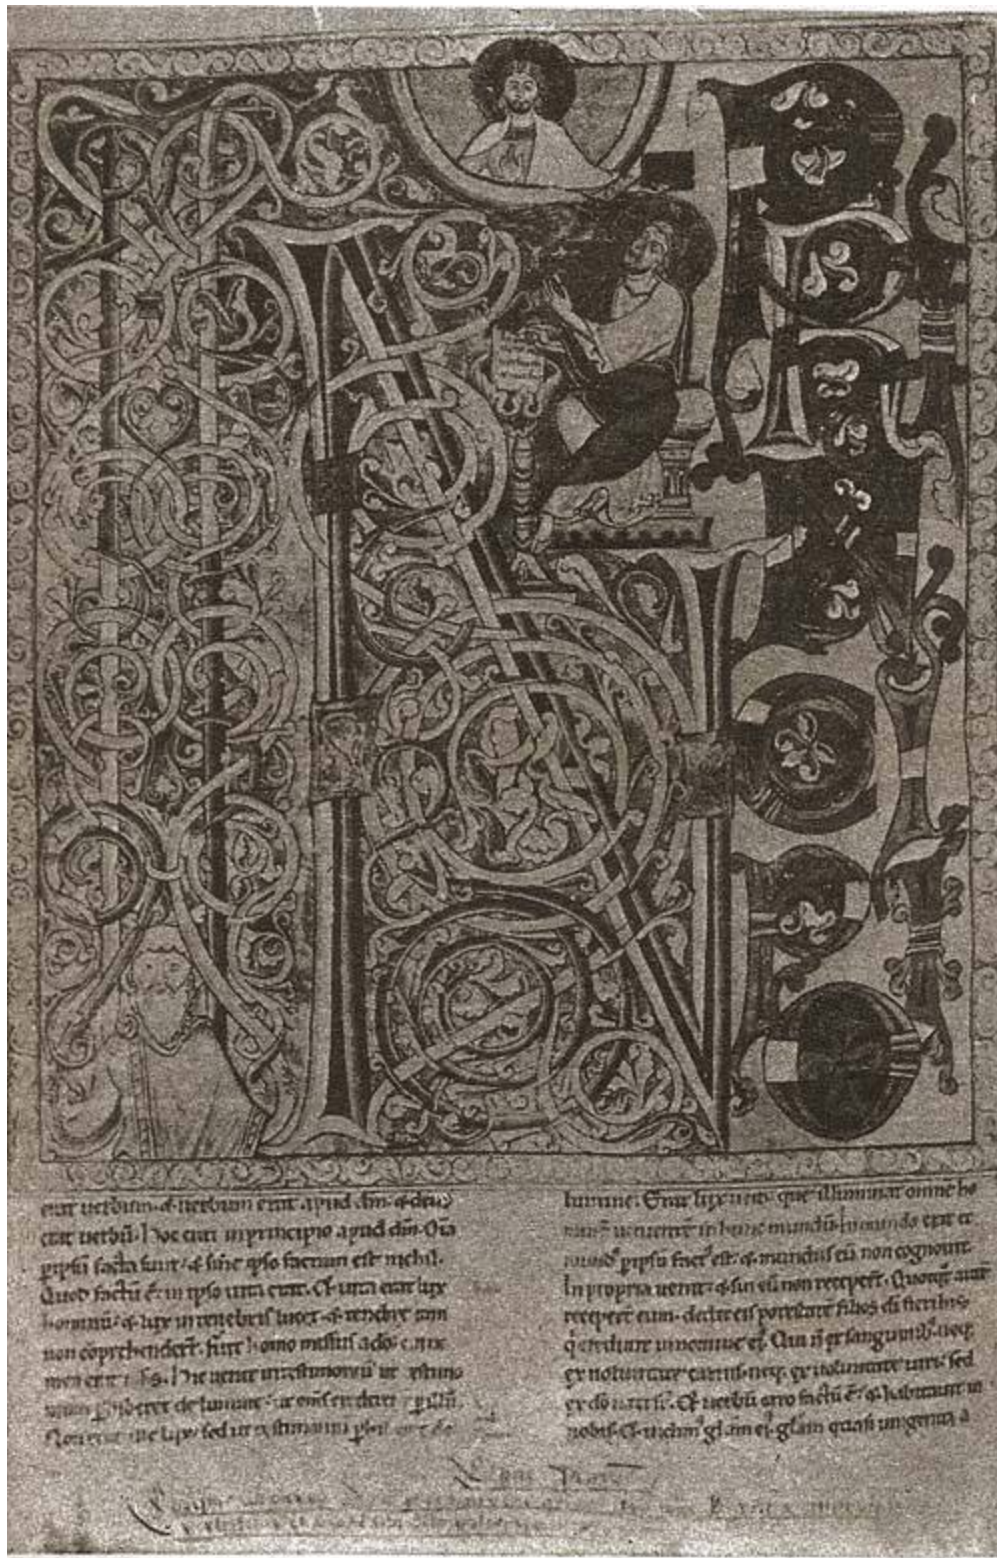 IN PRINCIPIO
erat uerbum. & uerbum erat apud dm̄. & deus
erat uerbū. Hoc erat in principio apud dm̄. Oīa
ꝑ ipsū facta sunt. & sine ipso factum est nichil.
Quod factū ē. in ipso uita erat. Et uita erat lux
hominū. & lux in tenebris lucet. & tenebre eam
non cōprehendert̄. fuit homo missus a deo cui no
men erat ioh̄s. Hic uenit in testimoniū ut testimo
nium ꝑhiberet de lumine. ut om̄s crederēt ꝑ illū.
Non erat ille lux. sed ut testimoniū ꝑhiberet de
lumine. Erat lux uera que illuminat omnē ho
minē uenientē in hunc mundū. In mundo erat et
mūdꝰ ꝑ ipsū factꝰ est. & mundus eū non cognouit.
In propria uenit. & sui eū non recepert̄. Quotqt̄ autē
recepert̄ eum. dedit eis potestatē filios di fieri his
q̇ credunt in nomine eiꝰ. Qui n̄ ex sanguinibꝰ neqꝫ
ex uoluntate carnis neqꝫ ex uoluntate uiri. sed
ex do nati st̄. Et uerbū caro factū ē. & habitauit in
nobis. Et uidimꝰ glām eiꝰ. glām quasi unigeniti a